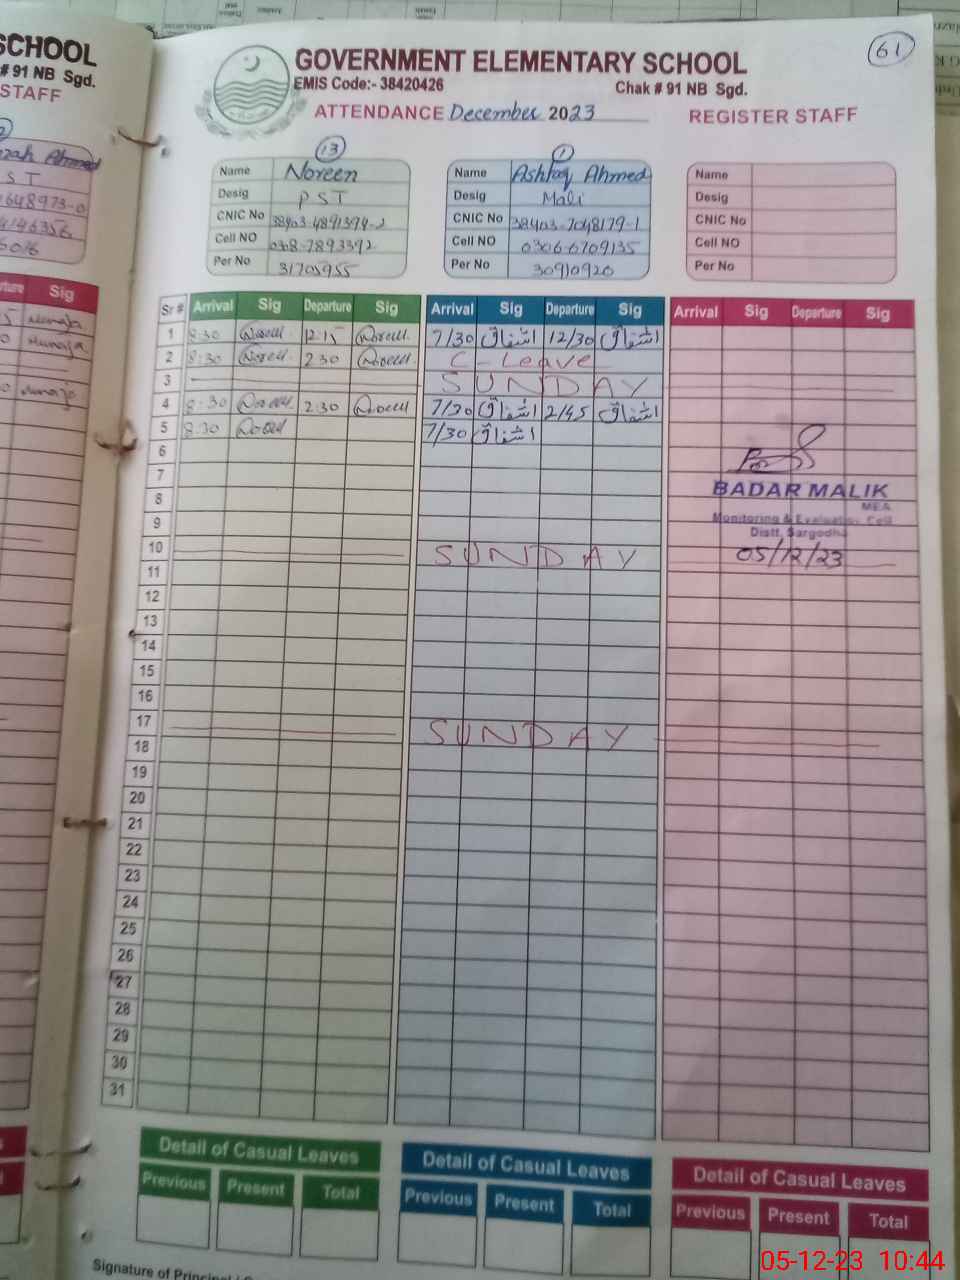 SCHOOL
# 91 NB Sgd.
STAFF
61
GOVERNMENT ELEMENTARY SCHOOL
EMIS Code:- 38420426 Chak # 91 NB Sgd.
ATTENDANCE December 2023 REGISTER STAFF
Ahmed
S T
Sig
13
Name Noreen
Desig PST
CNIC No 38403-4891394-2
Cell NO 0308-7893392
Per No 31705955
1
Name Ashfaq Ahmed
Desig Mali
CNIC No 38403-7048179-1
Cell NO 0306-6709135
Per No 30910920
Name
Desig
CNIC No
Cell NO
Per No
Sr # Arrival Sig Departure Sig Arrival Sig Departure Sig Arrival Sig Departure Sig
1 8:30 Noreen 12:15 Noreen 7/30 اشفاق 12/30 اشفاق
2 8:30 Noreen 2:30 Noreen C-Leave
3 SUNDAY
4 8:30 Noreen 2:30 Noreen 7/30 اشفاق 2/45 اشفاق
5 8:30 Noreen 7/30 اشفاق
6
7
8
9
10 SUNDAY
11
12
13
14
15
16
17 SUNDAY
18
19
20
21
22
23
24
25
26
27
28
29
30
31
BADAR MALIK
MEA
Monitoring & Evaluation Cell
Distt. Sargodha
05/12/23
Detail of Casual Leaves Detail of Casual Leaves Detail of Casual Leaves
Previous Present Total Previous Present Total Previous Present Total
Signature of Principal /
05-12-23 10:44